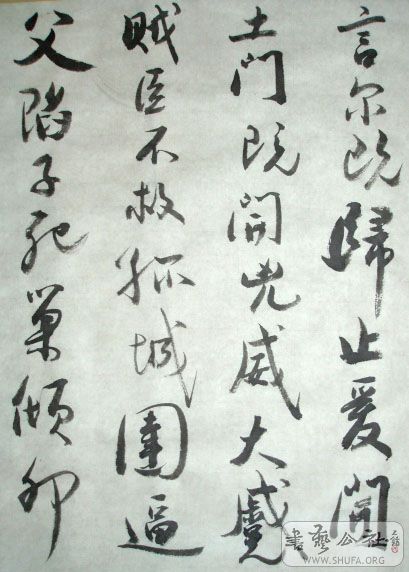 言尔既歸止爰開
土門既開兇威大蹙
賊臣不救孤城圍逼
父陷子死巢傾卵
書藝公社
WWW.SHUFA.ORG